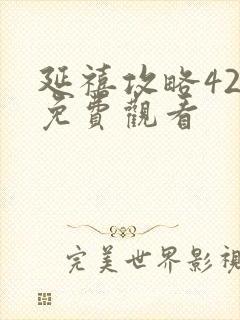 延禧攻略42
免費觀看
完美世界影視